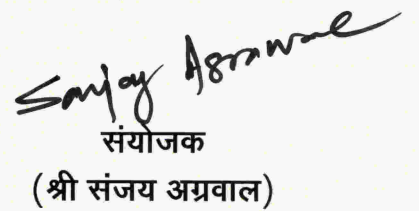 Sanjay Agrawal
संयोजक
(श्री संजय अग्रवाल)